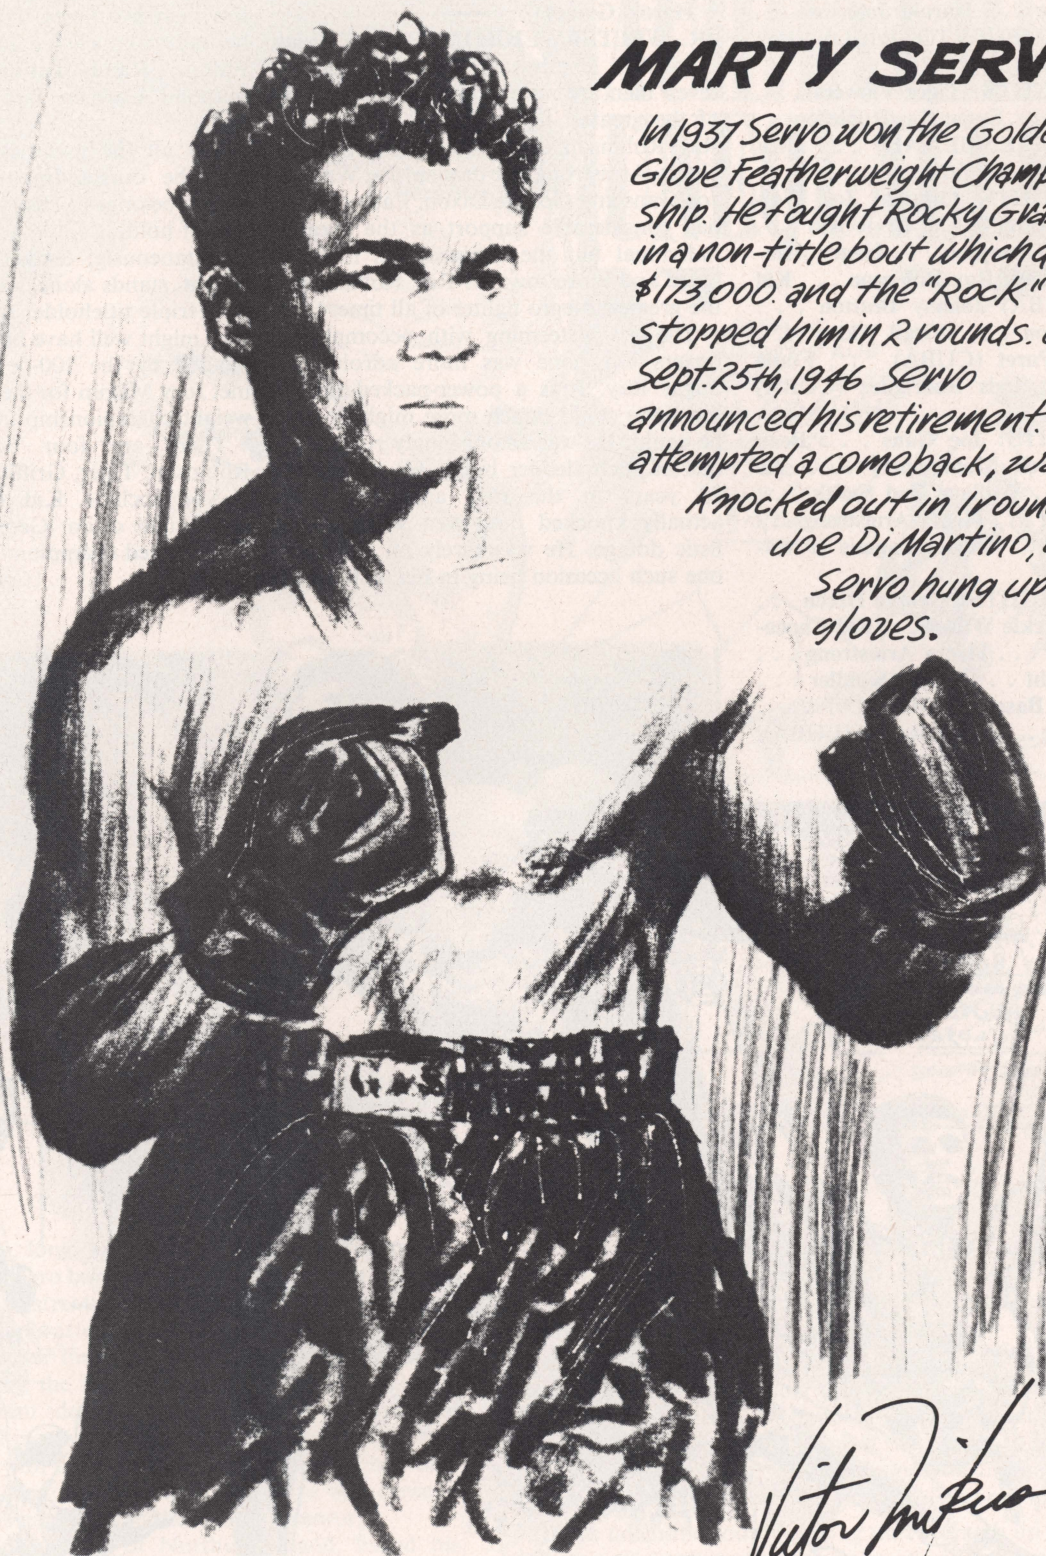 MARTY SERV
In 1937 Servo won the Golde
Glove Featherweight Champ
ship. He fought Rocky Gra
in a non-title bout which d
$173,000. and the "Rock"
stopped him in 2 rounds.
Sept. 25th, 1946 Servo
announced his retirement.
attempted a comeback, wa
knocked out in 1 roun
Joe Di Martino,
Servo hung up
gloves.
Victor